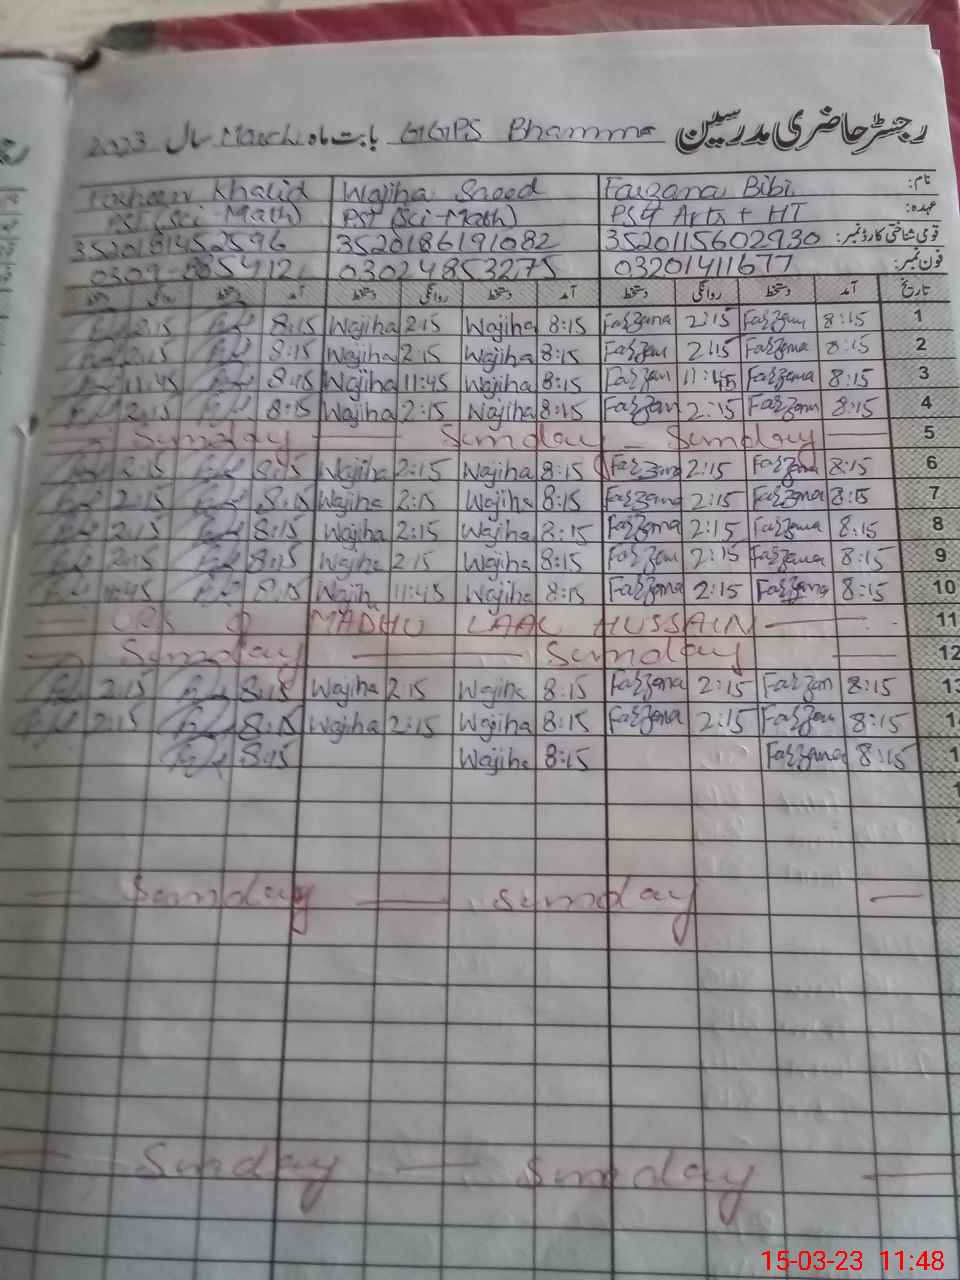 رجسٹر حاضری مدرسین GGPS Bhamma بابت ماہ March سال 2023
نام: Farzana Bibi Wajiha Saeed Khalid
عہدہ: PST Arts + HT PST (Sci-Math) PST (Sci-Math)
قومی شناختی کارڈ نمبر: 3520115602930 3520186191082
فون نمبر: 03201411677 03024853275
تاریخ آمد دستخط روانگی دستخط آمد دستخط روانگی دستخط آمد دستخط روانگی دستخط
1 8:15 Farzana 2:15 Farzana 8:15 Wajiha 2:15 Wajiha 8:15 2:15
2 8:15 Farzana 2:15 Farzan 8:15 Wajiha 2:15 Wajiha 8:15 2:15
3 8:15 Farzana 11:45 Farzan 8:15 Wajiha 11:45 Wajiha 8:15 11:45
4 8:15 Farzana 2:15 Farzan 8:15 Wajiha 2:15 Wajiha 8:15 2:15
5 Sunday Sunday Sunday
6 8:15 Farzana 2:15 Farzana 8:15 Wajiha 2:15 Wajiha 8:15 2:15
7 8:15 Farzana 2:15 Farzana 8:15 Wajiha 2:15 Wajiha 8:15 2:15
8 8:15 Farzana 2:15 Farzana 8:15 Wajiha 2:15 Wajiha 8:15 2:15
9 8:15 Farzana 2:15 Farzan 8:15 Wajiha 2:15 Wajiha 8:15 2:15
10 8:15 Farzana 2:15 Farzana 8:15 Wajiha 11:45 Wajih 8:15 11:45
11 URS OF MADHU LAAL HUSSAIN
12 Sunday Sunday
13 8:15 Farzan 2:15 Farzana 8:15 Wajiha 2:15 Wajiha 8:15 2:15
14 8:15 Farzan 2:15 Farzana 8:15 Wajiha 2:15 Wajiha 8:15 2:15
8:15 Farzana 8:15 Wajiha 8:15
Sunday Sunday
Sunday Sunday
15-03-23 11:48